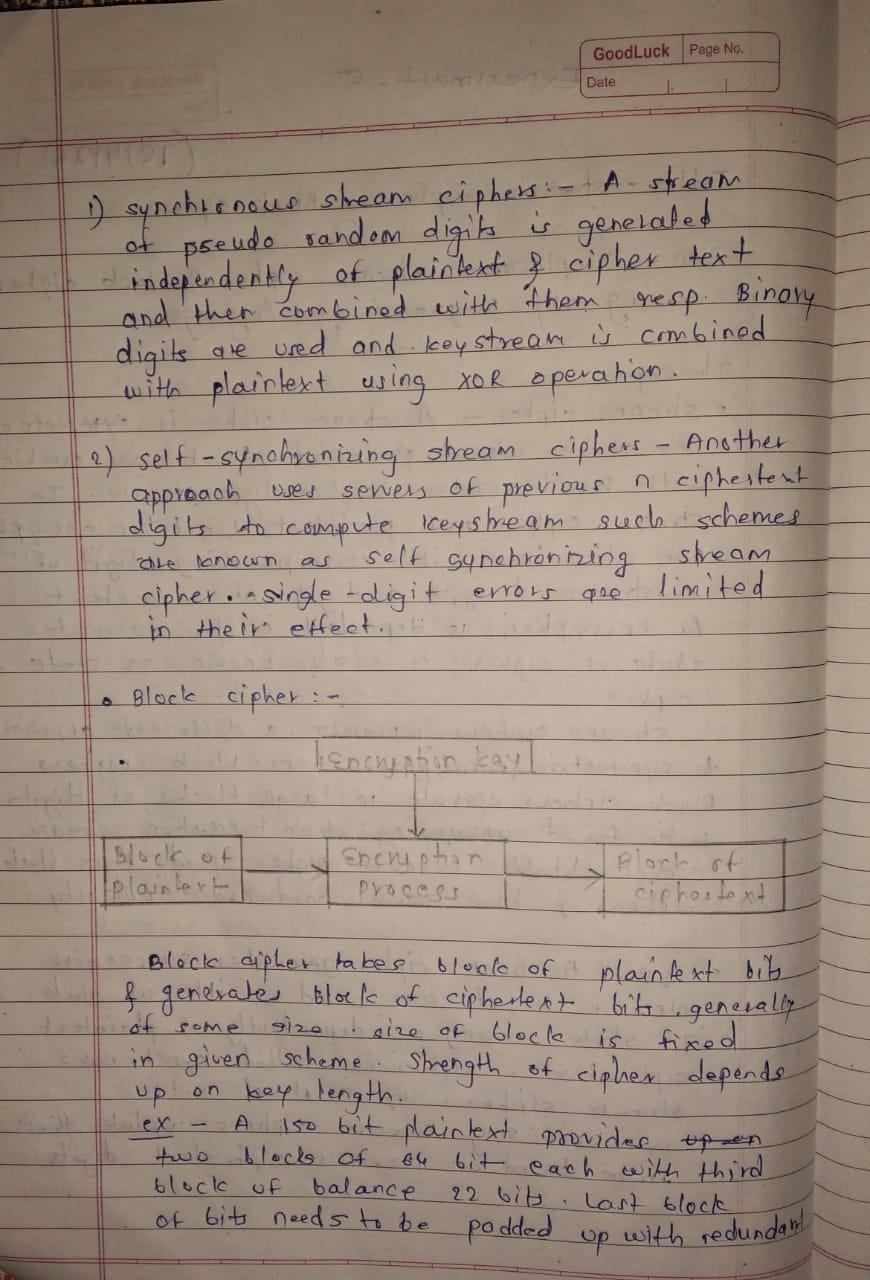 GoodLuck Page No.
Date
1) synchronous stream ciphers :- A stream
of pseudo random digits is generated
independently of plaintext & cipher text
and then combined with them resp. Binary
digits are used and keystream is combined
with plaintext using XOR operation.
2) self-synchronizing stream ciphers - Another
approach uses servers of previous n ciphertext
digits to compute keystream such schemes
are known as self synchronizing stream
cipher. single-digit errors are limited
in their effect.
• Block cipher :-
Encryption key
Block of plaintext
Encryption process
Block of ciphertext
Block cipher takes block of plaintext bits
& generates block of ciphertext bits, generally
of some size. size of block is fixed
in given scheme. Strength of cipher depends
up on key length.
ex - A 150 bit plaintext provides up on
two blocks of 64 bit each with third
block of balance 22 bits. Last block
of bits needs to be padded up with redundant